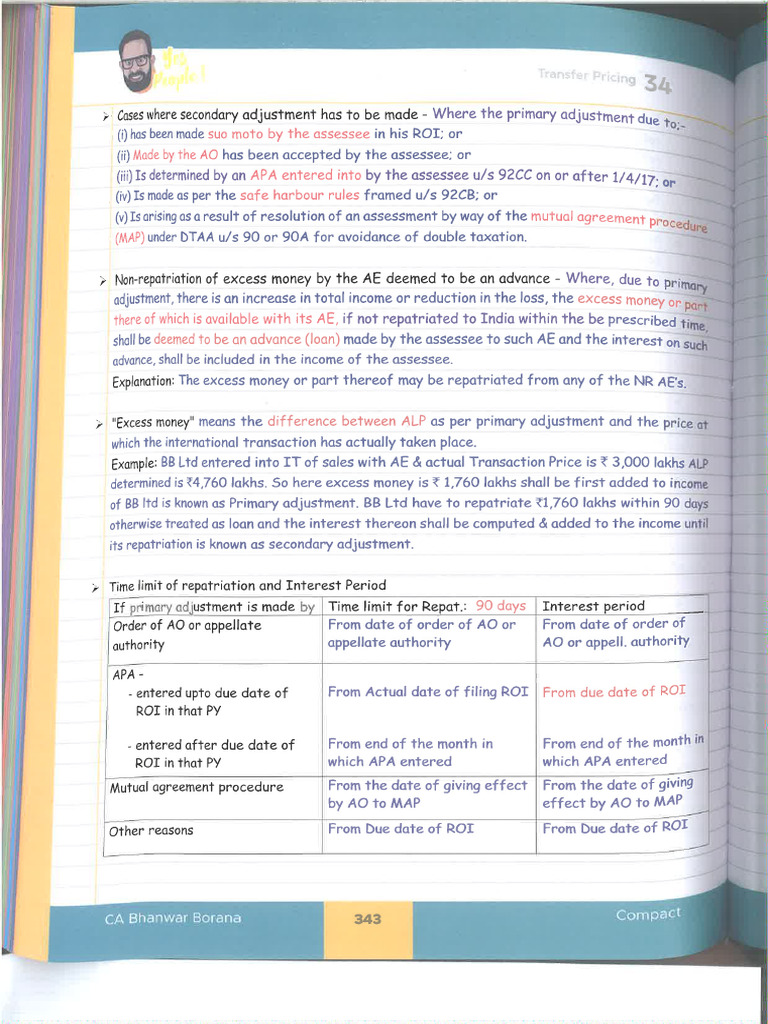 Yes
People!
Transfer Pricing 34
➤ Cases where secondary adjustment has to be made - Where the primary adjustment due to;-
(i) has been made suo moto by the assessee in his ROI; or
(ii) Made by the AO has been accepted by the assessee; or
(iii) Is determined by an APA entered into by the assessee u/s 92CC on or after 1/4/17; or
(iv) Is made as per the safe harbour rules framed u/s 92CB; or
(v) Is arising as a result of resolution of an assessment by way of the mutual agreement procedure
(MAP) under DTAA u/s 90 or 90A for avoidance of double taxation.
➤ Non-repatriation of excess money by the AE deemed to be an advance - Where, due to primary
adjustment, there is an increase in total income or reduction in the loss, the excess money or part
there of which is available with its AE, if not repatriated to India within the be prescribed time,
shall be deemed to be an advance (loan) made by the assessee to such AE and the interest on such
advance, shall be included in the income of the assessee.
Explanation: The excess money or part thereof may be repatriated from any of the NR AE's.
➤ "Excess money" means the difference between ALP as per primary adjustment and the price at
which the international transaction has actually taken place.
Example: BB Ltd entered into IT of sales with AE & actual Transaction Price is ₹ 3,000 lakhs ALP
determined is ₹4,760 lakhs. So here excess money is ₹ 1,760 lakhs shall be first added to income
of BB ltd is known as Primary adjustment. BB Ltd have to repatriate ₹1,760 lakhs within 90 days
otherwise treated as loan and the interest thereon shall be computed & added to the income until
its repatriation is known as secondary adjustment.
➤ Time limit of repatriation and Interest Period
If primary adjustment is made by Time limit for Repat.: 90 days Interest period
Order of AO or appellate From date of order of AO or From date of order of
authority appellate authority AO or appell. authority
APA -
- entered upto due date of From Actual date of filing ROI From due date of ROI
ROI in that PY
- entered after due date of From end of the month in From end of the month in
ROI in that PY which APA entered which APA entered
Mutual agreement procedure From the date of giving effect From the date of giving
by AO to MAP effect by AO to MAP
Other reasons From Due date of ROI From Due date of ROI
CA Bhanwar Borana 343 Compact